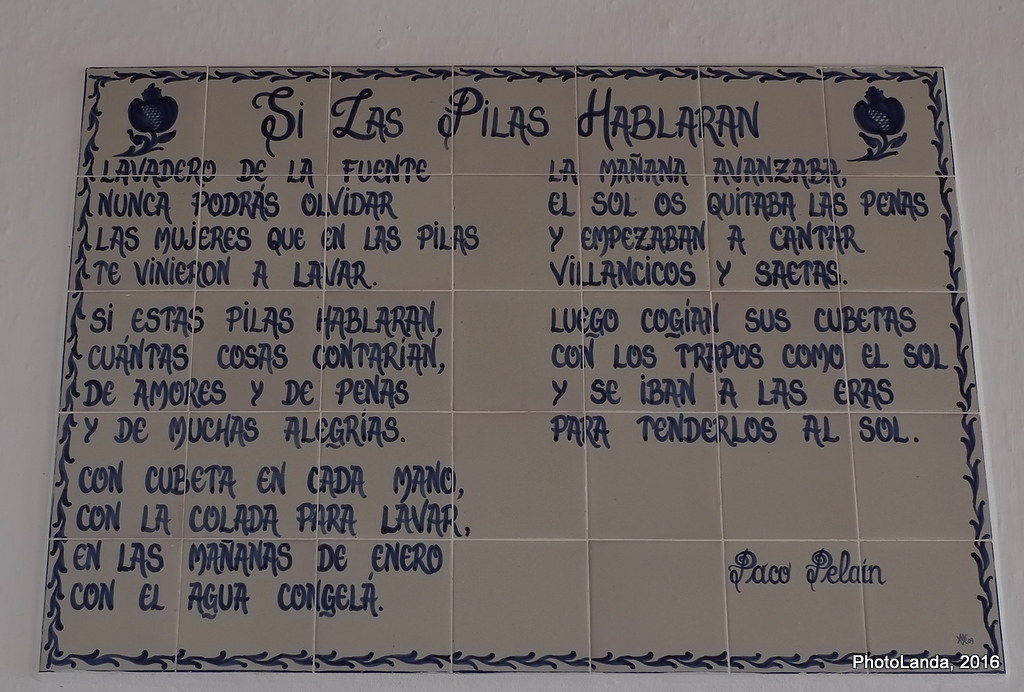 Si Las Pilas Hablaran
LAVADERO DE LA FUENTE
NUNCA PODRÁS OLVIDAR
LAS MUJERES QUE EN LAS PILAS
TE VINIERON A LAVAR.
SI ESTAS PILAS HABLARAN,
CUÁNTAS COSAS CONTARÍAN,
DE AMORES Y DE PENAS
Y DE MUCHAS ALEGRÍAS.
CON CUBETA EN CADA MANO,
CON LA COLADA PARA LAVAR,
EN LAS MAÑANAS DE ENERO
CON EL AGUA CONGELÁ.
LA MAÑANA AVANZABA,
EL SOL OS QUITABA LAS PENAS
Y EMPEZABAN A CANTAR
VILLANCICOS Y SAETAS.
LUEGO COGÍAN SUS CUBETAS
CON LOS TRAPOS COMO EL SOL
Y SE IBAN A LAS ERAS
PARA TENDERLOS AL SOL.
Paco Pelaín
PhotoLanda, 2016